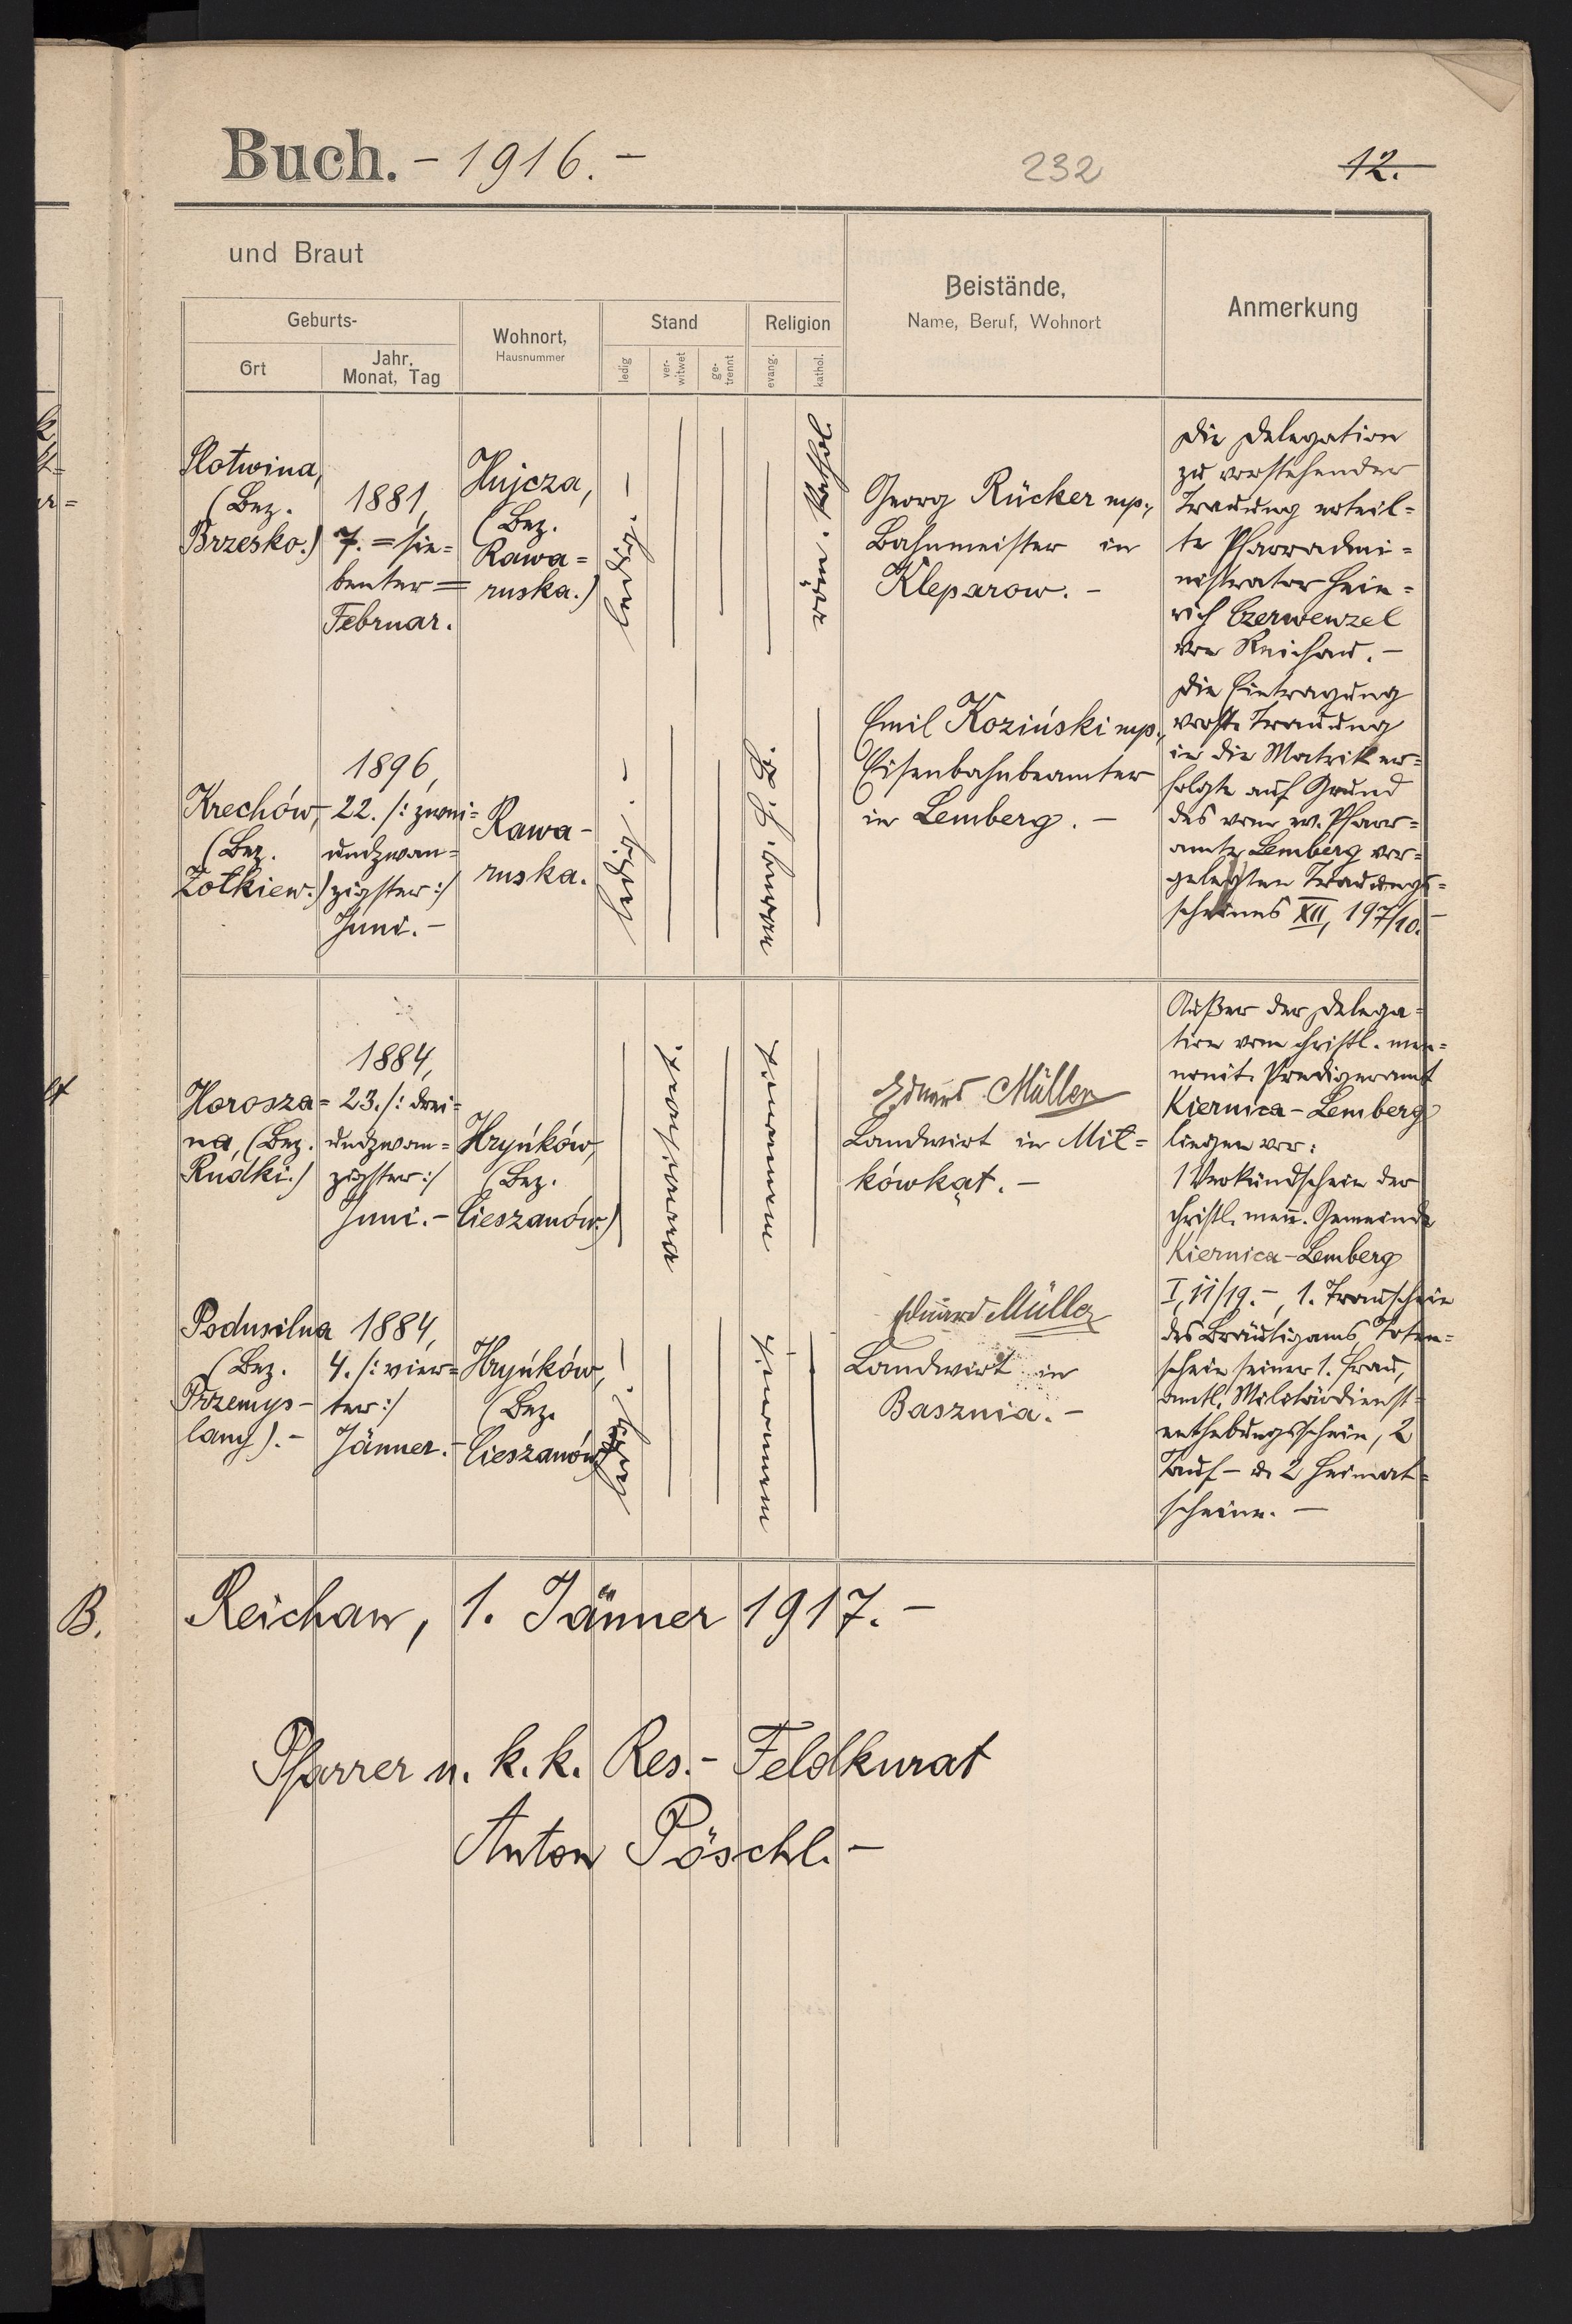 Buch. - 1916. -
232
12.
und Braut
Geburts-
Ort
Jahr,
Monat, Tag
Wohnort,
Hausnummer
Stand
ledig
ver-
witwet
ge-
trennt
Religion
evang.
kathol.
Beistände,
Name, Beruf, Wohnort
Anmerkung
Slotwina,
(Bez.
Brzesko.)
1881,
7. = sie=
benter =
Februar.
Hujcza,
(Bez.
Rawa=
ruska.)
ledig. -
röm. kathol
Georg Rücker mp.,
Bahnmeister in
Kleparow. -
Die Delegation
zu vorstehender
Trauung erteil=
te Pfarradmi=
nistrator Hein=
rich Czerwenzel
von Reichau. -
Krechów,
(Bez.
Żółkiew.)
1896,
22. /: zwei=
undzwan=
zigster :/
Juni. -
Rawa-
ruska.
ledig. -
evang. H. B.
Emil Koziński mp.,
Eisenbahnbeamter
in Lemberg. -
Die Eintragung
vorst. Trauung
in die Matrik er=
folgte auf Grund
des vom ev. Pfarr=
amte Lemberg vor=
gelegten Trauungs=
scheines XII, 197/10. -
Horosza=
na, (Bez.
Rudki.)
1884,
23. /: drei=
undzwan=
zigster :/
Juni. -
Hryńków,
(Bez.
Cieszanów.)
Eduard Müller
Landwirt in Mit=
kówkąt. -
Außer der Delega=
tion vom christl. men=
nonit. Predigeramt
Kiernica-Lemberg
liegen vor:
1 Verkündschein der
christl. menn. Gemeinde
Kiernica-Lemberg
I, 11/19. -, 1. Trauschein
des Bräutigams, Toten=
schein seiner 1. Frau,
amtl. Militärdienst=
enthebungsschein, 2
Tauf- u. 2 Heimat=
scheine. -
Podusilna
(Bez.
Przemys-
lany). -
1884,
4. /: vier=
ter :/
Jänner. -
Hryńków,
(Bez.
Cieszanów)
ledig. -
Eduard Müller
Landwirt in
Basznia. -
B.
Reichau, 1. Jänner 1917. -
Pfarrer u. k. k. Res.- Feldkurat
Anton Pöschl. -